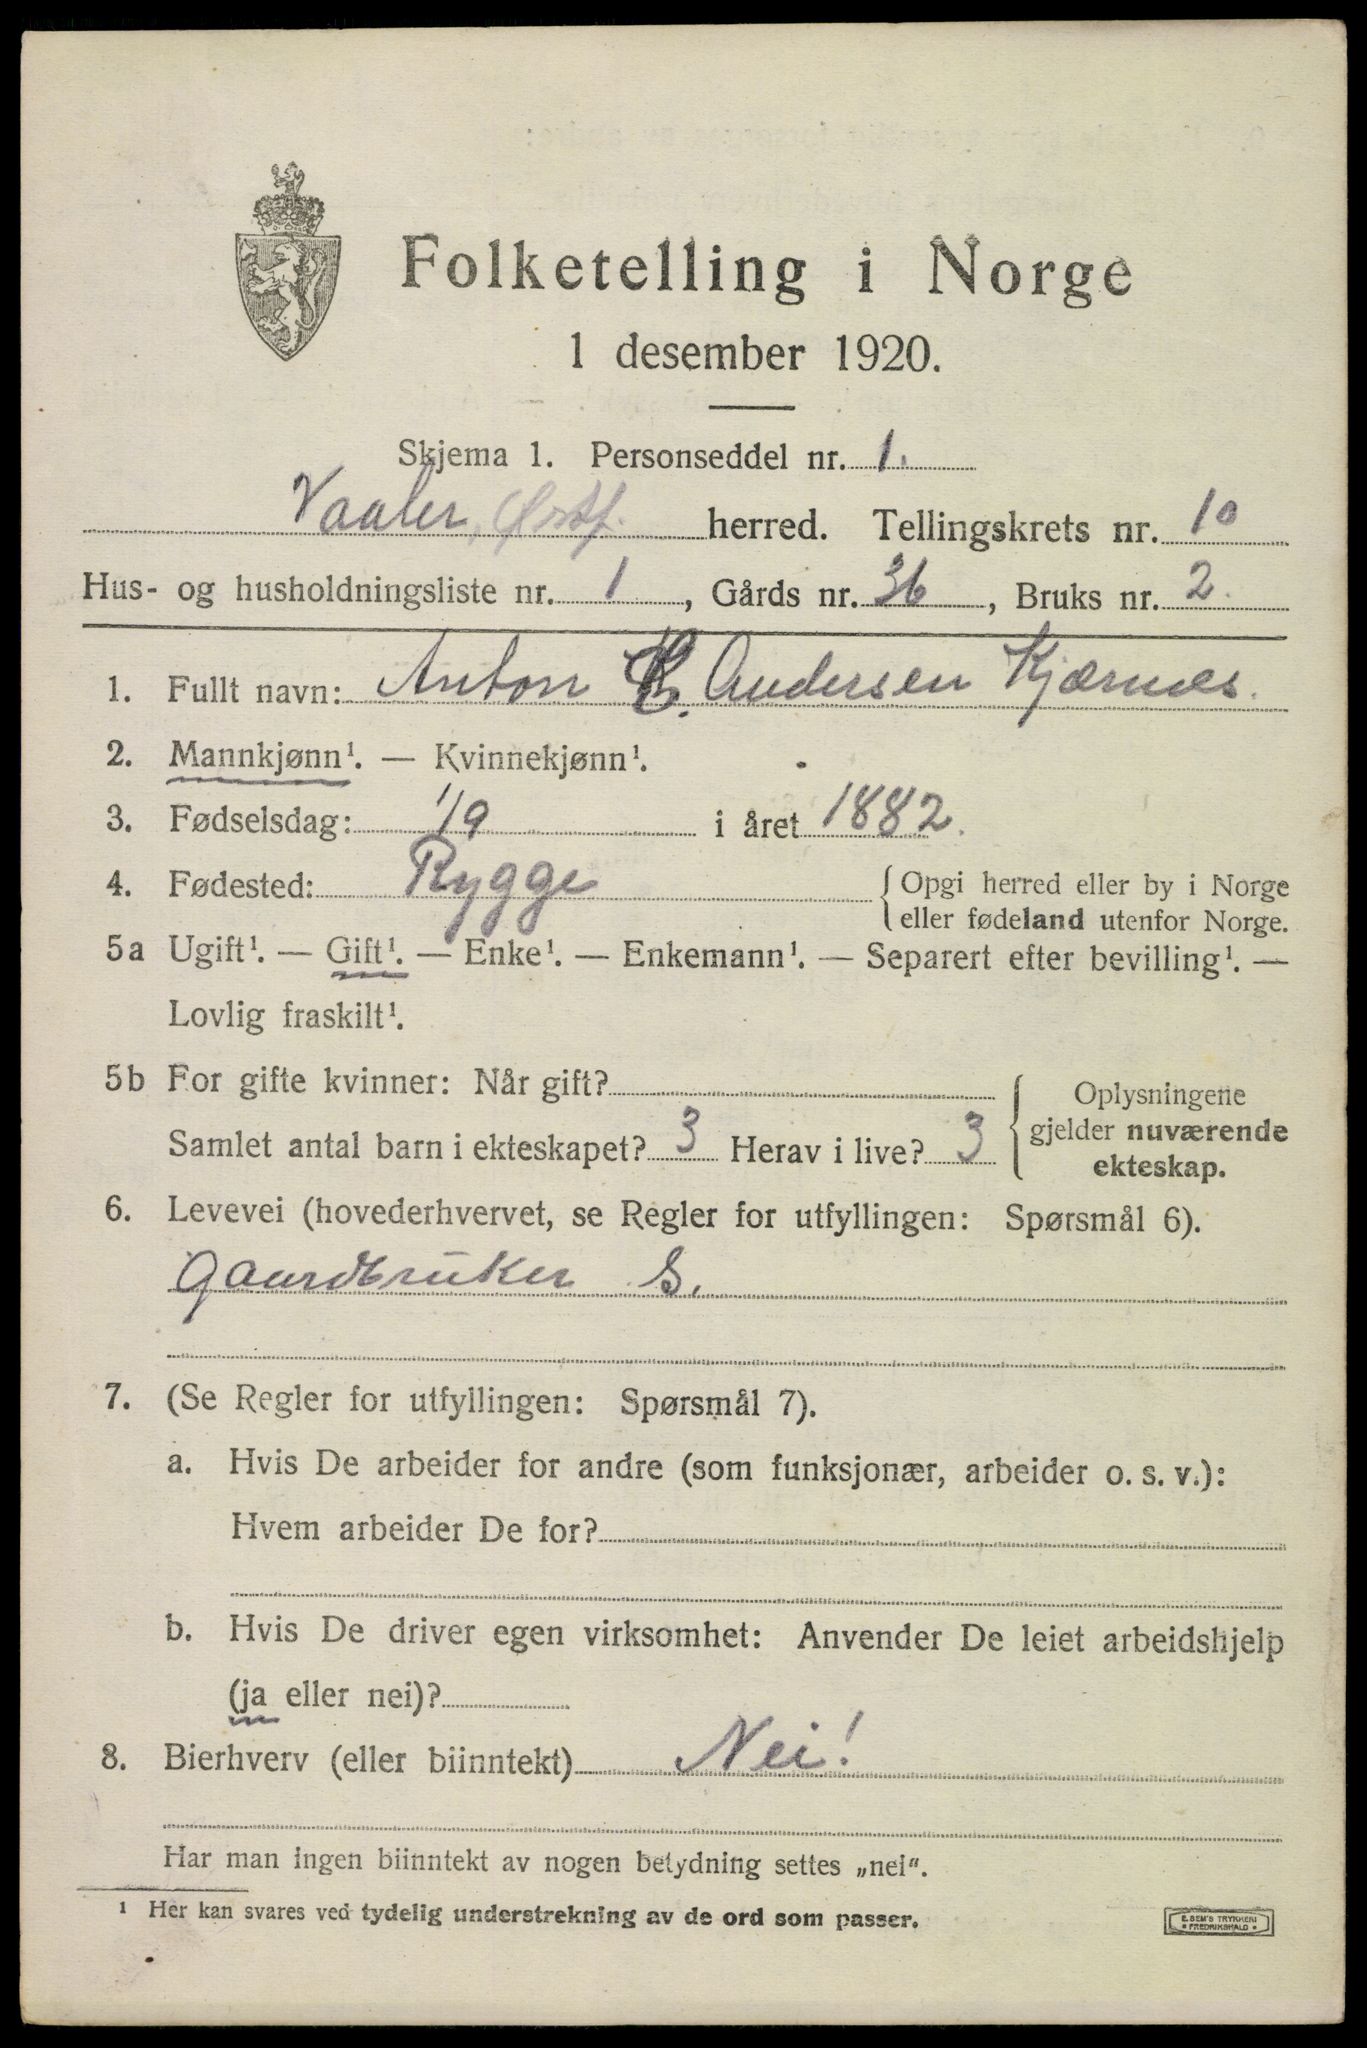 Folketelling i Norge
1 desember 1920.
Skjema 1. Personseddel nr. 1.
Vaaler, Østf. herred. Tellingskrets nr. 10
Hus- og husholdningsliste nr. 1, Gårds nr. 36, Bruks nr. 2.
1. Fullt navn: Anton Andersen Kjærnes.
2. Mannkjønn¹. — Kvinnekjønn¹.
3. Fødselsdag: 1/9 i året 1882.
4. Fødested: Rygge { Opgi herred eller by i Norge
eller fødeland utenfor Norge.
5a Ugift¹. — Gift¹. — Enke¹. — Enkemann¹. — Separert efter bevilling¹. —
Lovlig fraskilt¹.
5b For gifte kvinner: Når gift?
Samlet antal barn i ekteskapet? 3 Herav i live? 3
{ Oplysningene
gjelder nuværende
ekteskap.
6. Levevei (hovederhvervet, se Regler for utfyllingen: Spørsmål 6).
Gaardbruker S.
7. (Se Regler for utfyllingen: Spørsmål 7).
a. Hvis De arbeider for andre (som funksjonær, arbeider o. s. v.):
Hvem arbeider De for?
b. Hvis De driver egen virksomhet: Anvender De leiet arbeidshjelp
(ja eller nei)?
8. Bierhverv (eller biinntekt) Nei!
Har man ingen biinntekt av nogen betydning settes „nei“.
¹ Her kan svares ved tydelig understrekning av de ord som passer.
E. SEM'S TRYKKERI
• FREDRIKSHALD •